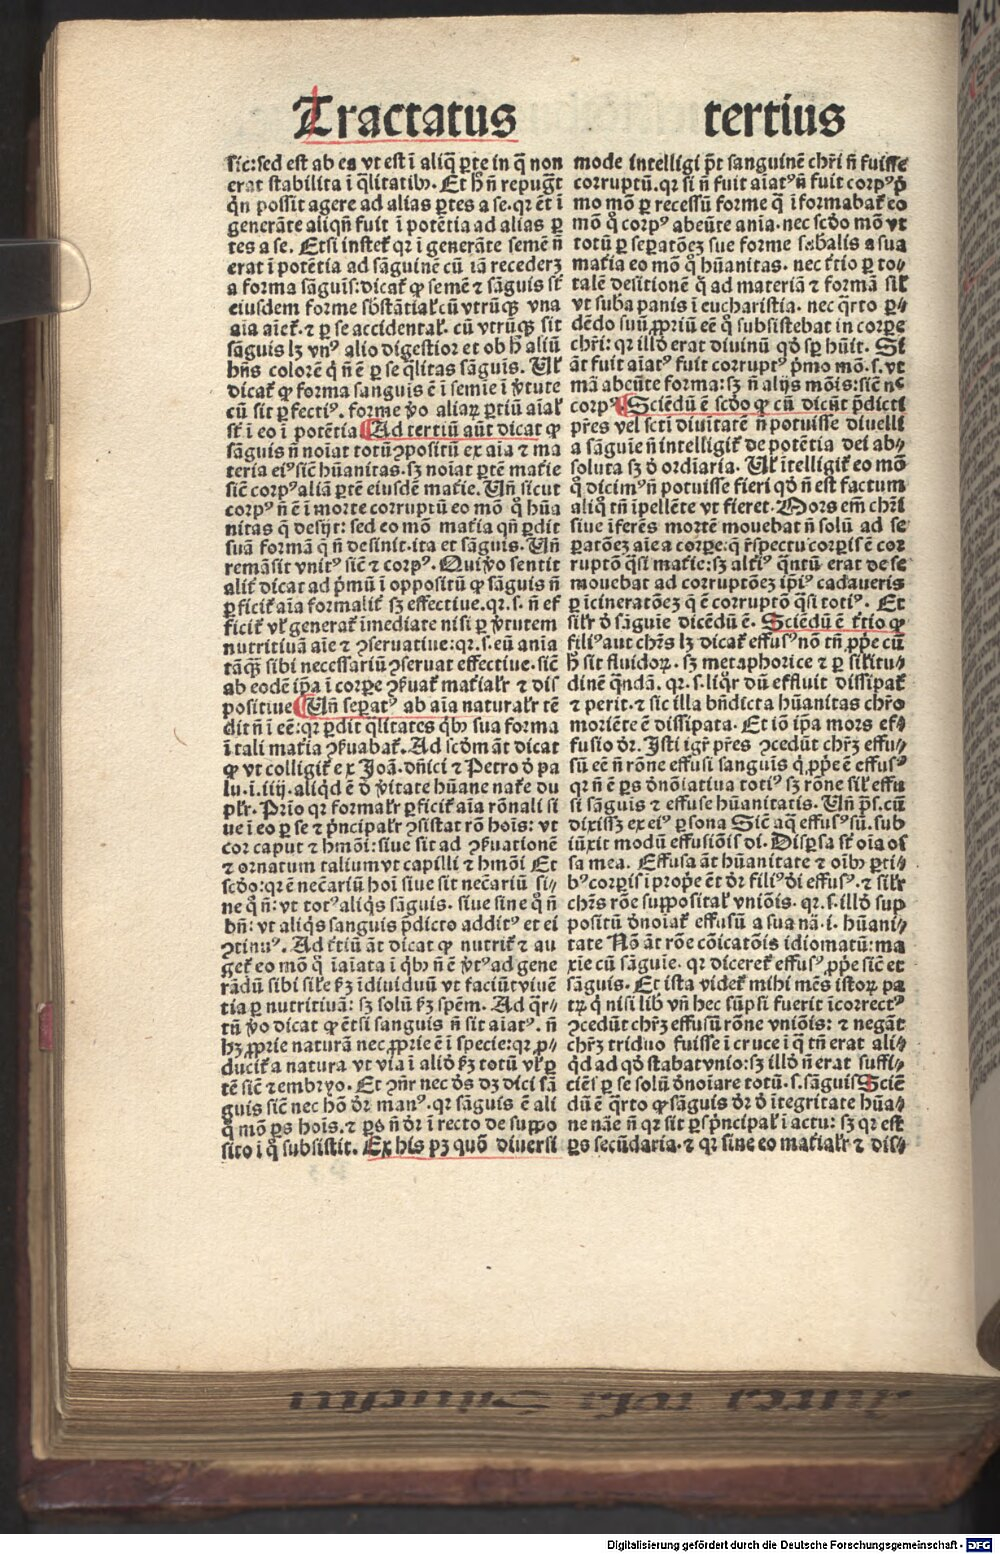 Tractatus tertius
sic: sed est ab ea vt est ī aliq̄ ꝑte in q̄ non
erat stabilita ī q̄litatibꝰ. Et h̄ñ repugt̄
q̄n possit agere ad alias ꝑtes a se. qr ēt ī
generāte aliqñ fuit ī potētia ad alias ꝑ
tes a se. Etsi instet᷑ qr ī generāte semē ñ
erat ī potētia ad sāguinē cū iā recederꝫ
a forma sāguīs: dicat᷑ ꝙ semē ⁊ sāguis st̄
eiusdem forme sb̄stātial᷑ cū vtrūqꝫ vna
aīa aīet᷑. ⁊ ꝑ se accidental᷑. cū vtrūqꝫ sit
sāguis lꝫ vnꝰ alio digestior et ob h̄ aliū
hñs colorē q̄ ñ ē ꝑ se q̄litas sāguis. Vl᷑
dicat᷑ ꝙ forma sanguis ē ī semīe ī v̓tute
cū sit ꝑfectiꝰ. forme v̓o aliaꝝ ꝑtiū aīal᷑
st̄ ī eo ī potētia ¶ Ad tertiū aūt dicat ꝙ
sāguis ñ noīat totū ꝯpositū ex aīa ⁊ ma
teria eiꝰ sic̄ hūanitas. sꝫ noīat ꝑtē mat̓ie
sic̄ corpꝰ aliā ꝑtē eiusdē mat̓ie. Vñ sicut
corpꝰ ñ ē ī morte corruptū eo mō q̊ hūa
nitas q̄ desijt: sed eo mō mat̓ia qñ ꝑdit
suā formā q̄ ñ desinit. ita et sāguis. Vñ
remāsit vnitꝰ sic̄ ⁊ corpꝰ. Qui v̓o sentit
alit̓ dicat ad p̓mū ī oppositū ꝙ sāguis ñ
ꝑficit᷑ aīa formalit̓ sꝫ effectiue. qr. s. ñ ef
ficit᷑ vl᷑ generat᷑ īmediate nisi ꝑ v̓tutem
nutritiuā aīe ⁊ ꝯseruatiue: qr. s. eū anīa
tāqꝫ sibi necessariū ꝯseruat effectiue. sic̄
ab eodē ip̄a ī corꝑe ꝯẜuat᷑ mat̓ialr̄ ⁊ dis
positiue ¶ Vñ seꝑatꝰ ab aīa naturalr̄ tē
dit ñ ī eē: qr ꝑdit q̄litates q̄bꝰ sua forma
ī tali mat̓ia ꝯẜuabat᷑. Ad scd̄m āt dicat
ꝙ vt colligit᷑ ex Joā. dñici ⁊ Petro d̓ pa
lu. ī. iiij. aliq̇d ē d̓ v̓itate hūane nat̓e du
pl̓r. Prīo qr formalr̄ ꝑficit᷑ aīa rōnali si
ue ī eo ꝑ se ⁊ p̓ncipalr̄ ꝯsistat rō hoīs: vt
cor caput ⁊ hmōi: siue sit ad ꝯẜuationē
⁊ ornatum talium vt capilli ⁊ hmōi Et
scd̄o: qr ē nec̄ariū hoī siue sit nec̄ariū si⸗
ne q̊ ñ: vt totꝰ aliq̇s sāguis. siue sine q̊ ñ
bñ: vt aliq̇s sanguis p̄dicto additꝰ et ei
ꝯtinuꝰ. Ad t̓tiū āt dicat ꝙ nutrit᷑ ⁊ au
get᷑ eo mō q̊ īaīata ī q̇bꝰ ñ ē v̓tꝰ ad gene
rādū sibi sil̓e ẜꝫ īdiuiduū vt faciūt viuē
tia ꝑ nutritiuā: sꝫ solū ẜꝫ spēm. Ad q̄r⸗
tū v̓o dicat ꝙ etsi sanguis ñ sit aīatꝰ. ñ
hꝫ ꝓprie naturā nec ꝓprie ē ī specie: qr ꝓ⸗
ducit᷑ a natura vt via ī aliđ ẜꝫ totū vl᷑ ꝑ
tē sic̄ ⁊ embryo. Et ꝯñr nec d̓s dꝫ dici sā
guis sic̄ nec hō dr̄ manꝰ. qr sāguis ē ali
q̊ mō ꝑs hoīs. ⁊ ꝑs ñ dr̄ ī recto de suppo
sito ī q̊ subsistit. Ex his pꝫ quō diuersi
mode intelligi pt̄ sanguinē chr̄i ñ fuisse
corruptū. qr si ñ fuit aīatꝰ ñ fuit corpꝰ p̓
mo mō ꝑ recessū forme q̄ ī formabat᷑ eo
mō q̊ corpꝰ abeūte anīa. nec scd̄o mō vt
totū ꝑ seꝑatōeꝫ sue forme sb̄alis a sua
mat̓ia eo mō q̊ hūanitas. nec t̓tio ꝑ to⸗
talē desitionē q̊ ad materiā ⁊ formā sil̓
vt suba panis ī eucharistia. nec q̄rto ꝑ⸗
dēdo suū ꝓpriū eē q̊ subsistebat in corꝑe
chr̄i: qr illđ erat diuinū qđ sꝑ hūit. Si
āt fuit aīatꝰ fuit corruptꝰ p̓mo mō. s. vt
mā abeūte forma: sꝫ ñ alijs mōis: sic̄ nc̄
corpꝰ ¶ Sciēdū ē scd̄o ꝙ cū dicūt p̄dicti
pr̄es vel sc̄ti diuitatē ñ potuisse diuelli
a sāguīe ñ intelligit᷑ de potētia dei ab⸗
soluta sꝫ d̓ ordīaria. Vl᷑ ītelligit᷑ eo mō
q̊ dicimꝰ ñ potuisse fieri qđ ñ est factum
aliq̊ tñ īpellēte vt fieret. Mors em̄ chr̄i
siue īferēs mortē mouebat ñ solū ad se
ꝑatōeꝫ aīe a corꝑe: q̄ r̄spectu corꝑis ē cor
ruptō q̄si mat̓ie: sꝫ alt̓iꝰ q̄ntū erat de se
mouebat ad corruptōeꝫ ip̄iꝰ cadaueris
ꝑ īcineratōeꝫ q̄ ē corruptō q̄si totiꝰ. Et
sil̓r d̓ sāguīe dicēdū ē. Sciēdū ē t̓tio ꝙ
filiꝰ aut chr̄s lꝫ dicat᷑ effusꝰ nō tñ ꝓpe cū
h̄ sit fluidoꝝ. sꝫ metaphorice ⁊ ꝑ sil̓itu⸗
dinē q̄ndā. qr. s. liq̊r dū effluit dissipat᷑
⁊ perit. ⁊ sic illa bñdicta hūanitas chr̄o
moriēte ē dissipata. Et iō ip̄a mors ef⸗
fusio dr̄. Isti igr̄ pr̄es ꝯcedūt chr̄ꝫ effu⸗
sū eē ñ rōne effusi sanguis q̇ ꝓpe ē effusꝰ
qr ñ ē ꝑs d̓nōiatiua totiꝰ sꝫ rōne sil̓ effu
si sāguis ⁊ effuse hūanitatis. Vñ p̄s. cū
dixissꝫ ex eiꝰ ꝑsona Sic̄ aq̄ effusꝰ sū. sub
iūxit modū effusiōis di. Disꝑsa st̄ oīa os
sa mea. Effusa āt hūanitate ⁊ oībꝰ ꝑti⸗
bꝰ corꝑis ī prope ēt dr̄ filiꝰ d̓i effusꝰ. ⁊ sil̓r
chr̄s rōe supposital᷑ vniōis. qr. s. illđ sup
positū d̓noīat᷑ effusū a sua nā. i. hūani⸗
tate Nō āt rōe cōicatōis idiomatū: ma
xīe cū sāguīe. qr diceret᷑ effusꝰ ꝓpe sic̄ et
sāguis. Et ista videt᷑ mihi mēs istoꝝ pa
tꝝ q̊ nisi lib̓ vñ hec sūpsi fuerit īcorrectꝰ
ꝯcedūt chr̄ꝫ effusū rōne vniōis: ⁊ negāt
chr̄ꝫ triduo fuisse ī cruce ī q̊ tñ erat ali⸗
q̇d ad qđ stabat vnio: sꝫ illđ ñ erat suffi⸗
ciēs ꝑ se solū d̓noīare totū. s. sāguis Sciē
dū ē q̄rto ꝙ sāguis dr̄ d̓ ītegritate hūa⸗
ne nāe ñ qr sit ꝑs p̓ncipal᷑ ī actu: sꝫ qr est
ꝑs secūdaria. ⁊ qr sine eo mat̓ialr̄ ⁊ dis⸗
Digitalisierung gefördert durch die Deutsche Forschungsgemeinschaft - DFG